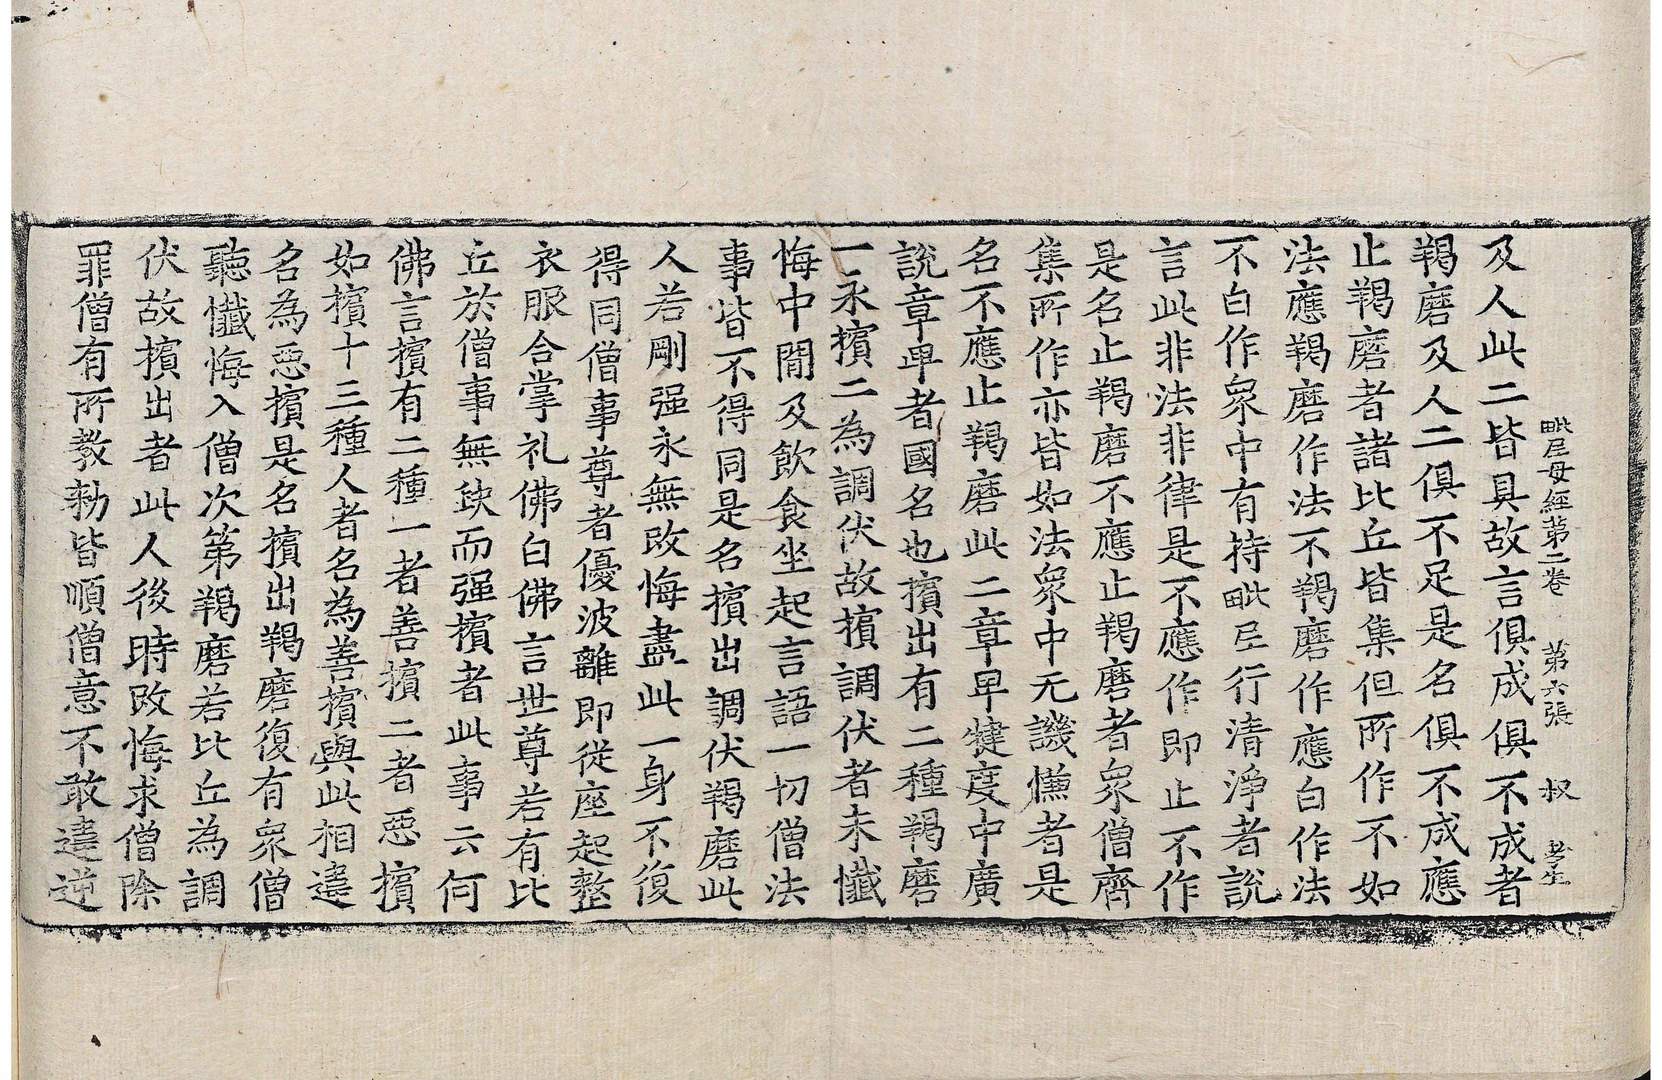 毗尼母經第二卷　第六張　叔
及人此二皆具故言俱成俱不成者
羯磨及人二俱不足是名俱不成應
止羯磨者諸比丘皆集但所作不如
法應羯磨作法不羯磨作應白作法
不白作衆中有持毗尼行清淨者說
言此非法非律是不應作即止不作
是名止羯磨不應止羯磨者衆僧齊
集所作亦皆如法衆中无譏慊者是
名不應止羯磨此二章早揵度中廣
說章甲者國名也擯出有二種羯磨
一永擯二為調伏故擯調伏者未懺
悔中間及飲食坐起言語一切僧法
事皆不得同是名擯出調伏羯磨此
人若剛强永無改悔盡此一身不復
得同僧事尊者優波離即從座起整
衣服合掌礼佛白佛言世尊若有比
丘於僧事無缺而强擯者此事云何
佛言擯有二種一者善擯二者惡擯
如擯十三種人者名為善擯與此相違
名為惡擯是名擯出羯磨復有衆僧
聽懺悔入僧次第羯磨若比丘為調
伏故擯出者此人後時改悔求僧除
罪僧有所教勑皆順僧意不敢違逆